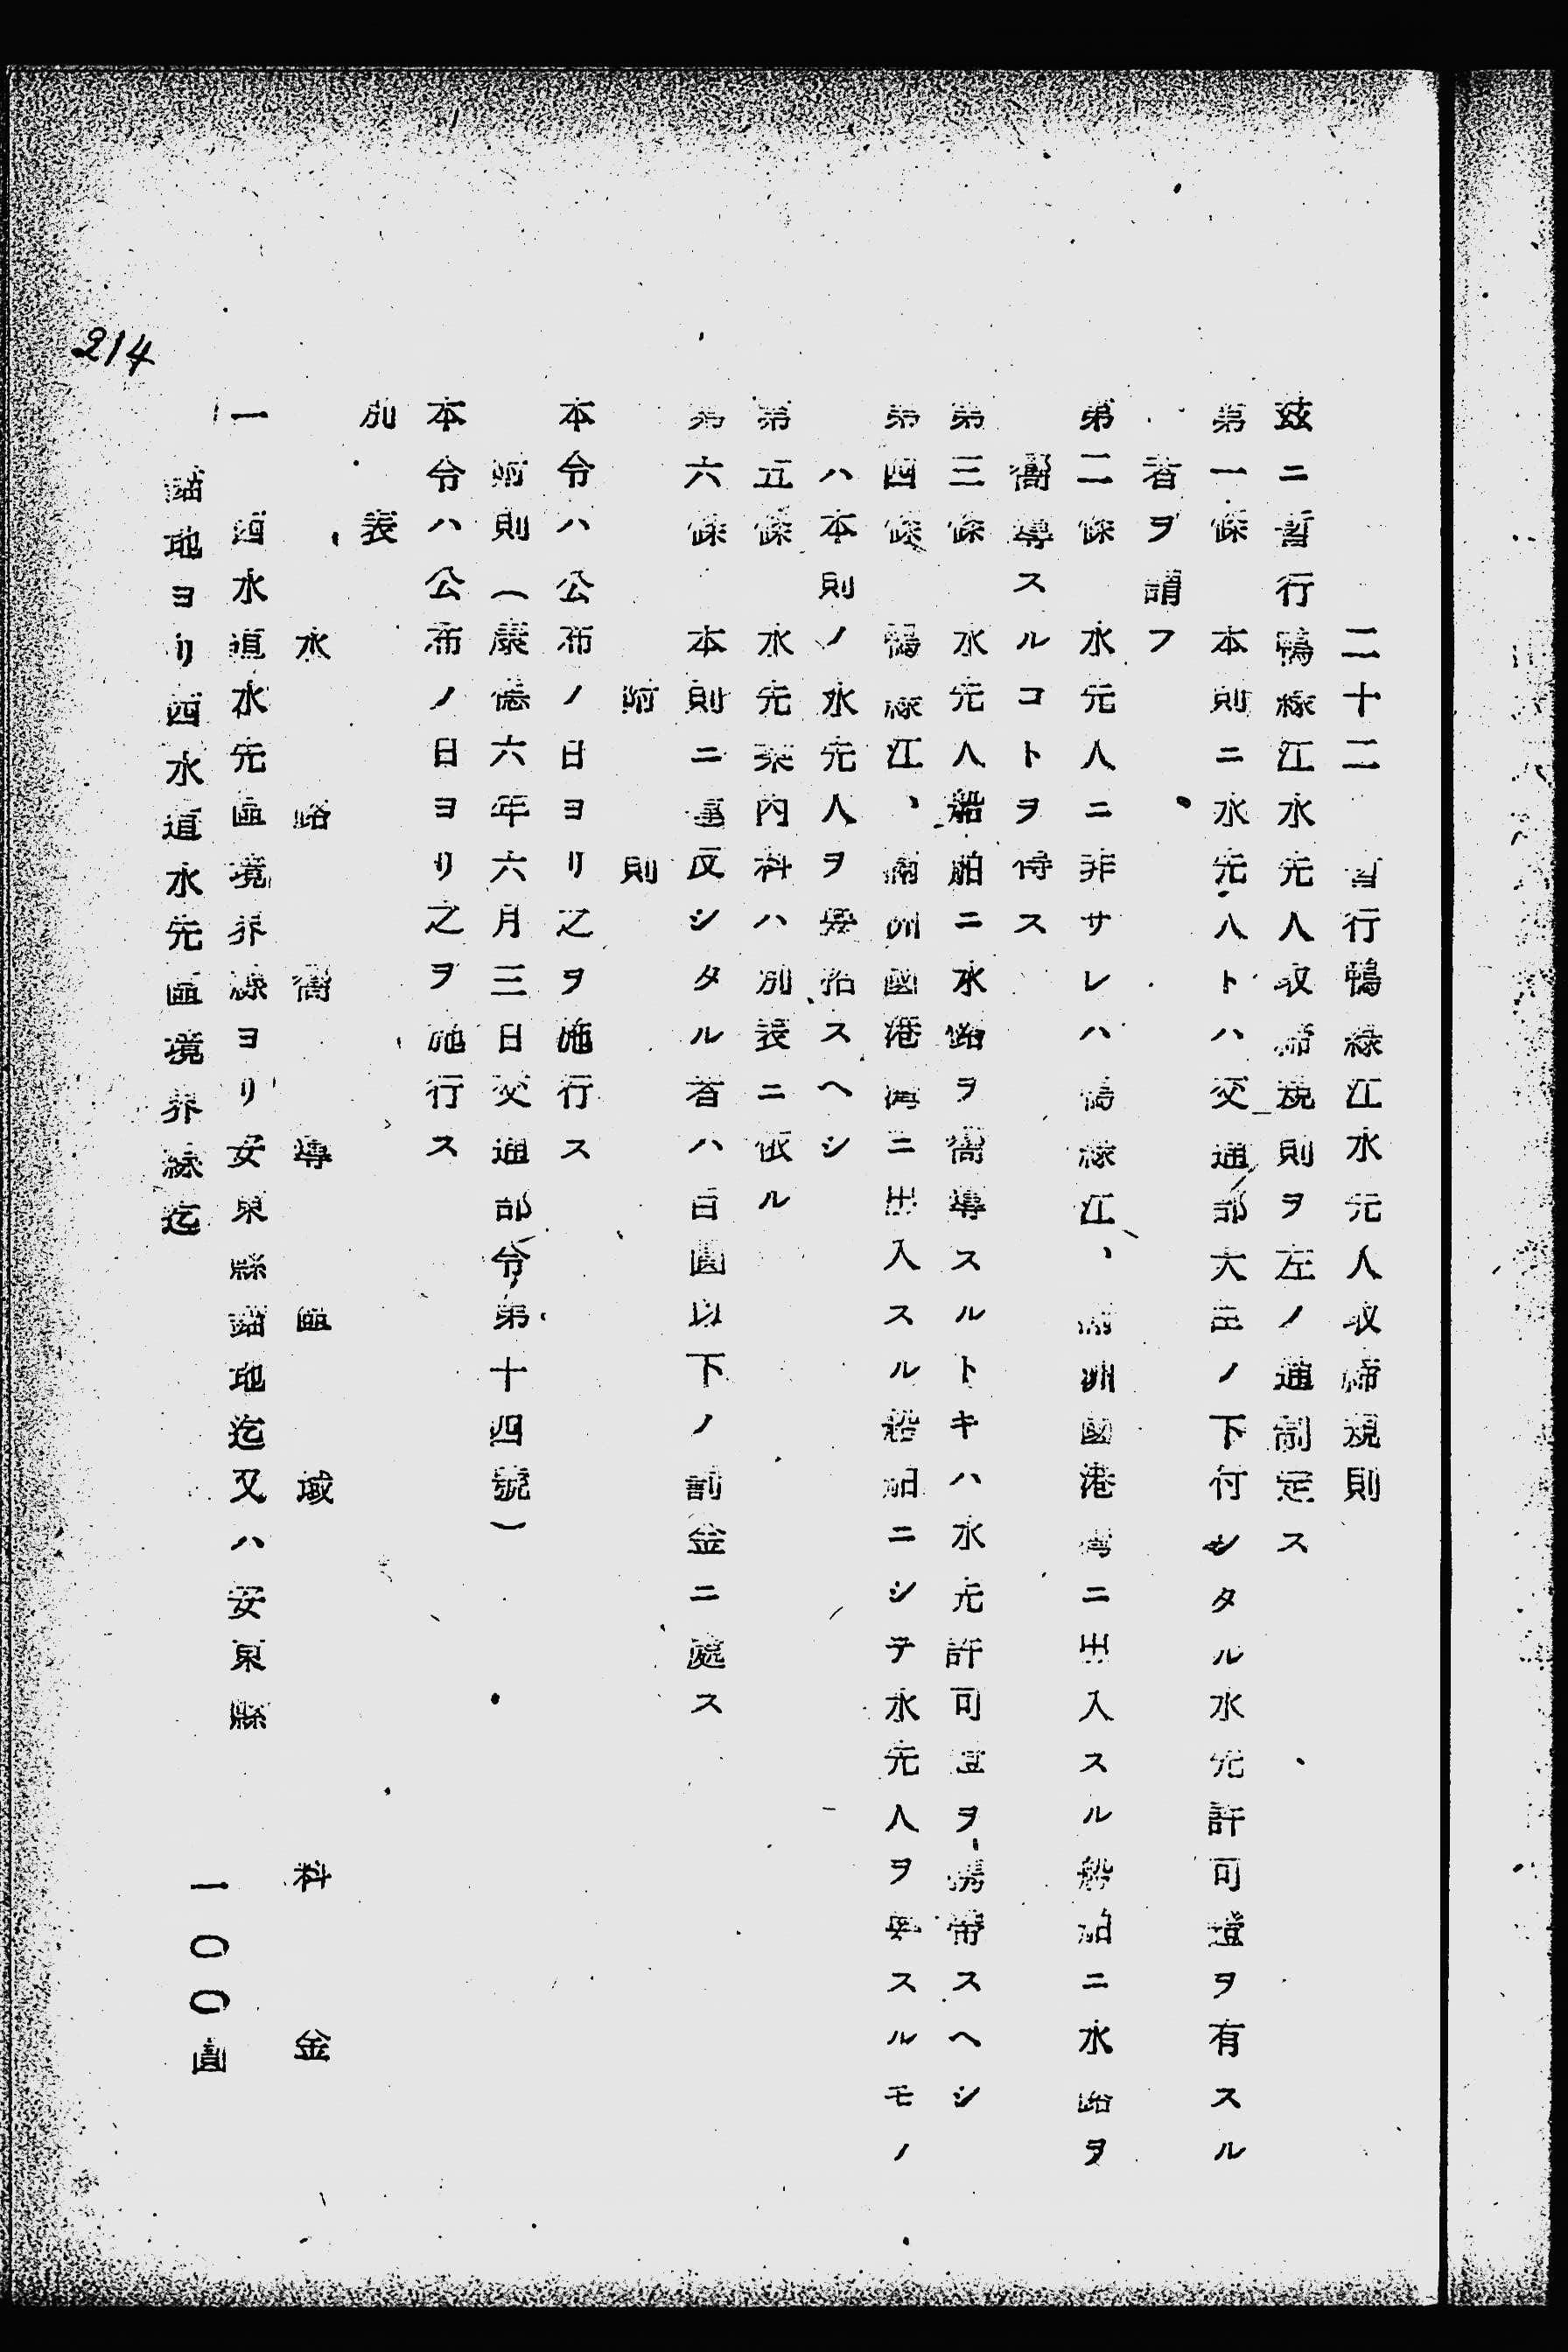 二十二　暫行鴨綠江水先人取締規則
茲ニ暫行鴨綠江水先人取締規則ヲ左ノ通制定ス
第一條　本則ニ水先人トハ交通部大臣ノ下付シタル水先許可證ヲ有スル
者ヲ謂フ
第二條　水先人ニ非サレハ鴨綠江、滿洲國港灣ニ出入スル船舶ニ水路ヲ
嚮導スルコトヲ得ス
第三條　水先人船舶ニ水路ヲ嚮導スルトキハ水先許可證ヲ携帶スヘシ
第四條　鴨綠江、滿洲國港灣ニ出入スル船舶ニシテ水先人ヲ要スルモノ
ハ本則ノ水先人ヲ要招スヘシ
第五條　水先案內料ハ別表ニ依ル
第六條　本則ニ違反シタル者ハ百圓以下ノ罰金ニ處ス
附　則
本令ハ公布ノ日ヨリ之ヲ施行ス
附則（康德六年六月三日交通部令第十四號）
本令ハ公布ノ日ヨリ之ヲ施行ス
別　表
水路嚮導區域　料金
一　西水道水先區境界線ヨリ安東縣諸地迄又ハ安東縣
諸地ヨリ西水道水先區境界線迄
一〇〇圓
214